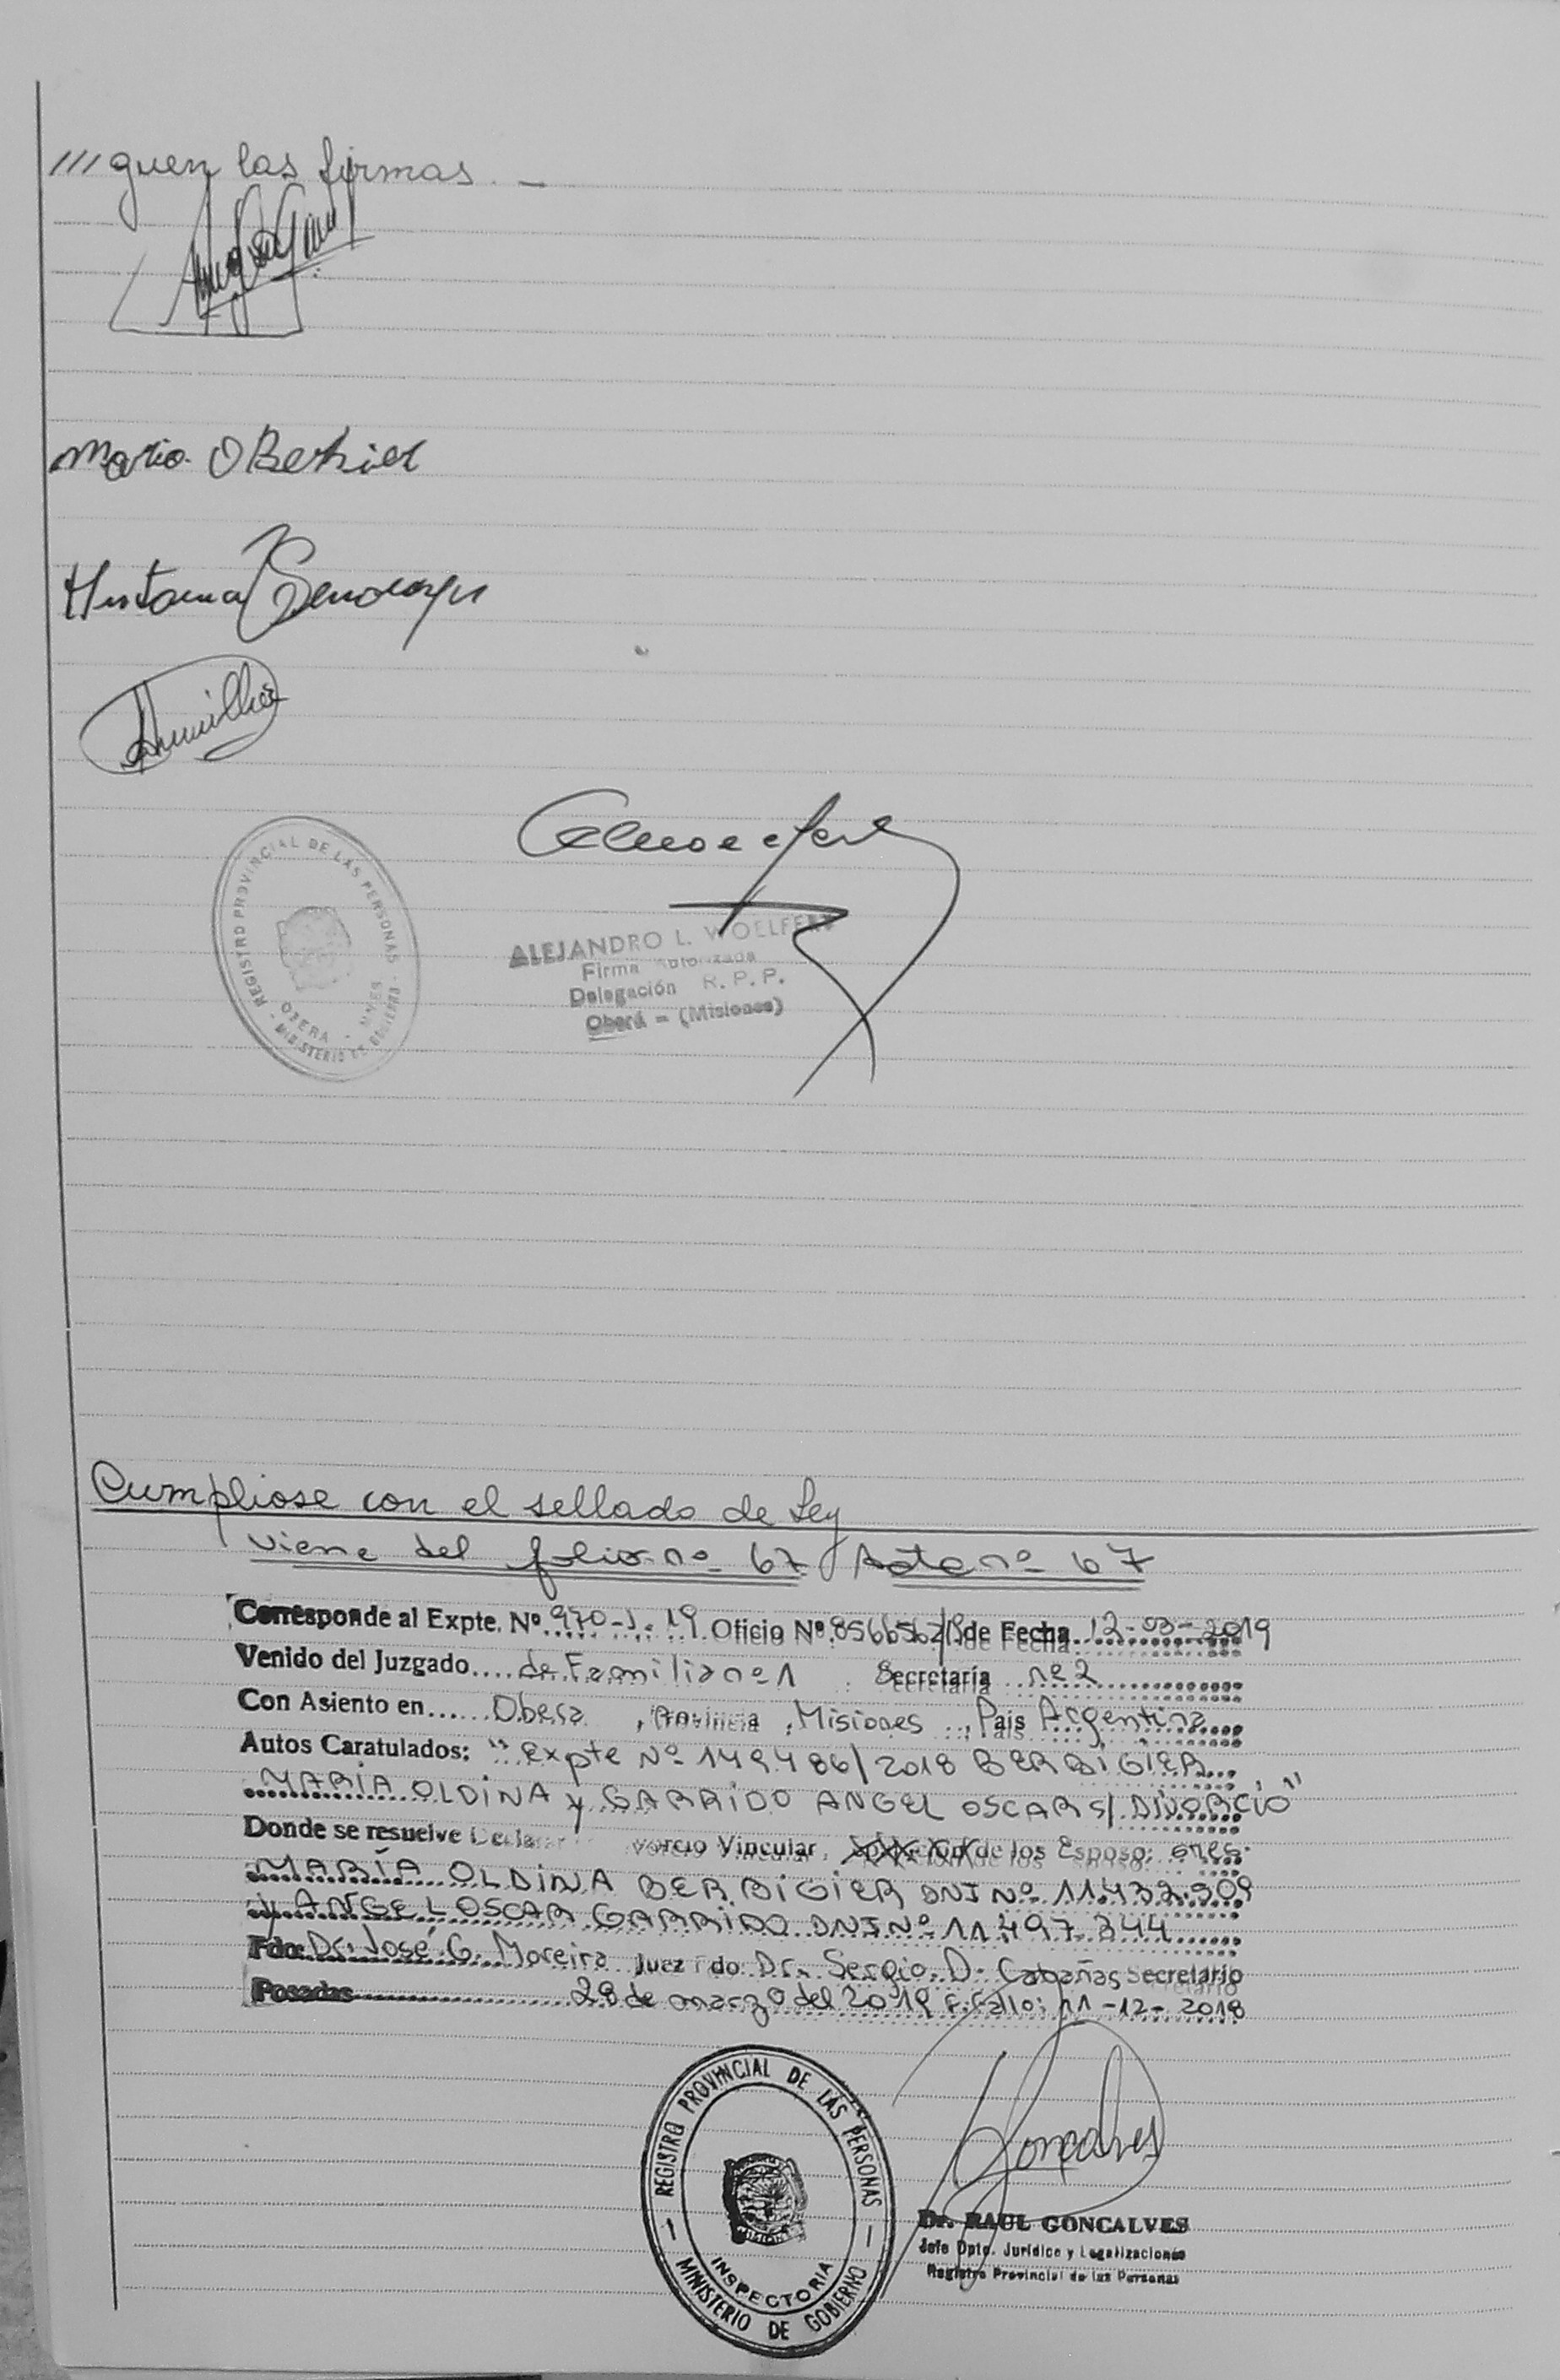 ///guen las firmas. _
Maria O Berbigier
REGISTRO PROVINCIAL DE LAS PERSONAS
OBERA - MNES
MINISTERIO DE GOBIERNO
ALEJANDRO L. WOELFERT
Firma Autorizada
Delegación R. P. P.
Oberá - (Misiones)
Cumpliose con el sellado de Ley
Viene del folio nº 67 Acta nº 67
Corresponde al Expte. Nº 970-J-19 Oficio Nº de Fecha 12-03-2019
Venido del Juzgado de Familia nº 1 Secretaría nº 2
Con Asiento en Obera, Provincia Misiones, País Argentina
Autos Caratulados: "Expte Nº 149486/2018 BERBIGIER
MARÍA OLDINA y GARRIDO ANGEL OSCAR S/ DIVORCIO"
Donde se resuelve Declarar vorcio Vincular, de los Esposo: ones.
MARÍA OLDINA BERBIGIER DNI Nº 11.432.909
y ANGEL OSCAR GARRIDO DNI Nº 11.497.344
Fdo: Dr. José G. Moreira Juez Fdo: Dr. Sergio D. Cabañas Secretario
Posadas 28 de marzo del 2019 F. Fallo: 11-12-2018
REGISTRO PROVINCIAL DE LAS PERSONAS
INSPECTORIA
MINISTERIO DE GOBIERNO
Goncalves
Dr. RAUL GONCALVES
Jefe Dpto. Jurídico y Legalizaciones
Registro Provincial de las Personas